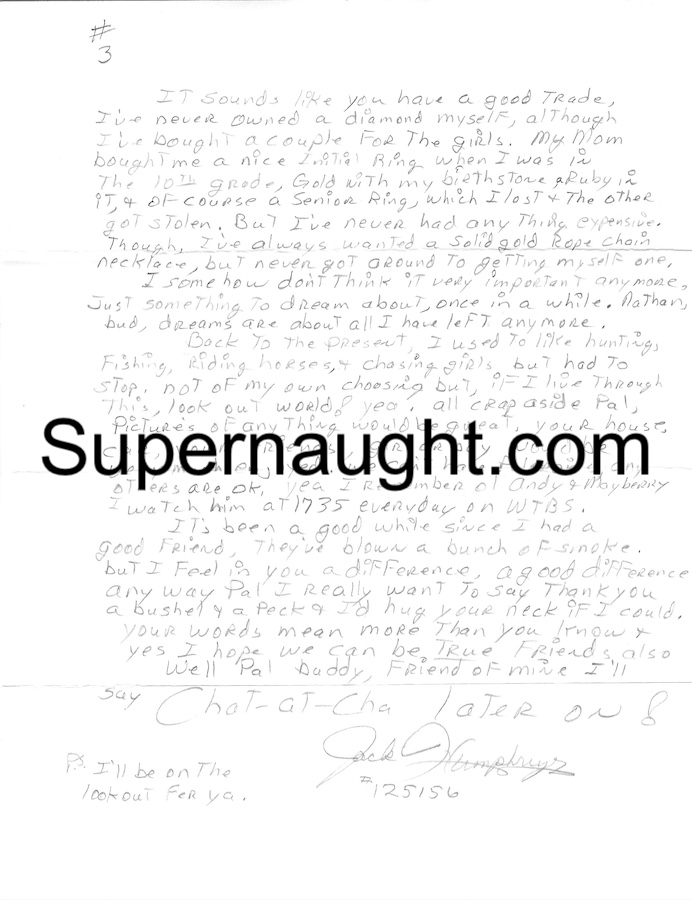 #
3
IT sounds like you have a good Trade,
I've never owned a diamond myself, although
I've bought a couple For The girls. My Mom
bought me a nice Initial Ring when I was in
The 10th grade, Gold with my birthstone a Ruby in
iT, & of course a Senior Ring, which I lost & The other
got stolen. But I've never had any Thing expensive.
Though, I've always wanted a Solid gold Rope chain
necklace, but never got around To getting myself one.
I somehow don't Think it very important anymore,
Just something To dream about, once in a while. Nathan,
bud, dreams are about all I have left anymore.
Back To The present, I used To like hunting,
Fishing, Riding horses, & chasing girls, but had To
stop, not of my own choosing but, if I live Through
This, look out world! yea, all crap aside Pal,
Pictures of any Thing would be great, your house,
Supernaught.com
others are ok, yea I remember ol Andy & Mayberry
I watch him at 1735 everyday on WTBS.
IT's been a good while since I had a
good Friend, They've blown a bunch of smoke.
but I Feel in you a difference, a good difference
any way Pal I really want To say Thank you
a bushel & a Peck & I'd hug your neck if I could.
your words mean more Than you know &
yes I hope we can be True Friends also
Well Pal Buddy, Friend of mine I'll
say Chat-at-Cha later on!
Jack Humphreys
#125156
P.S. I'll be on The
lookout Fer ya.